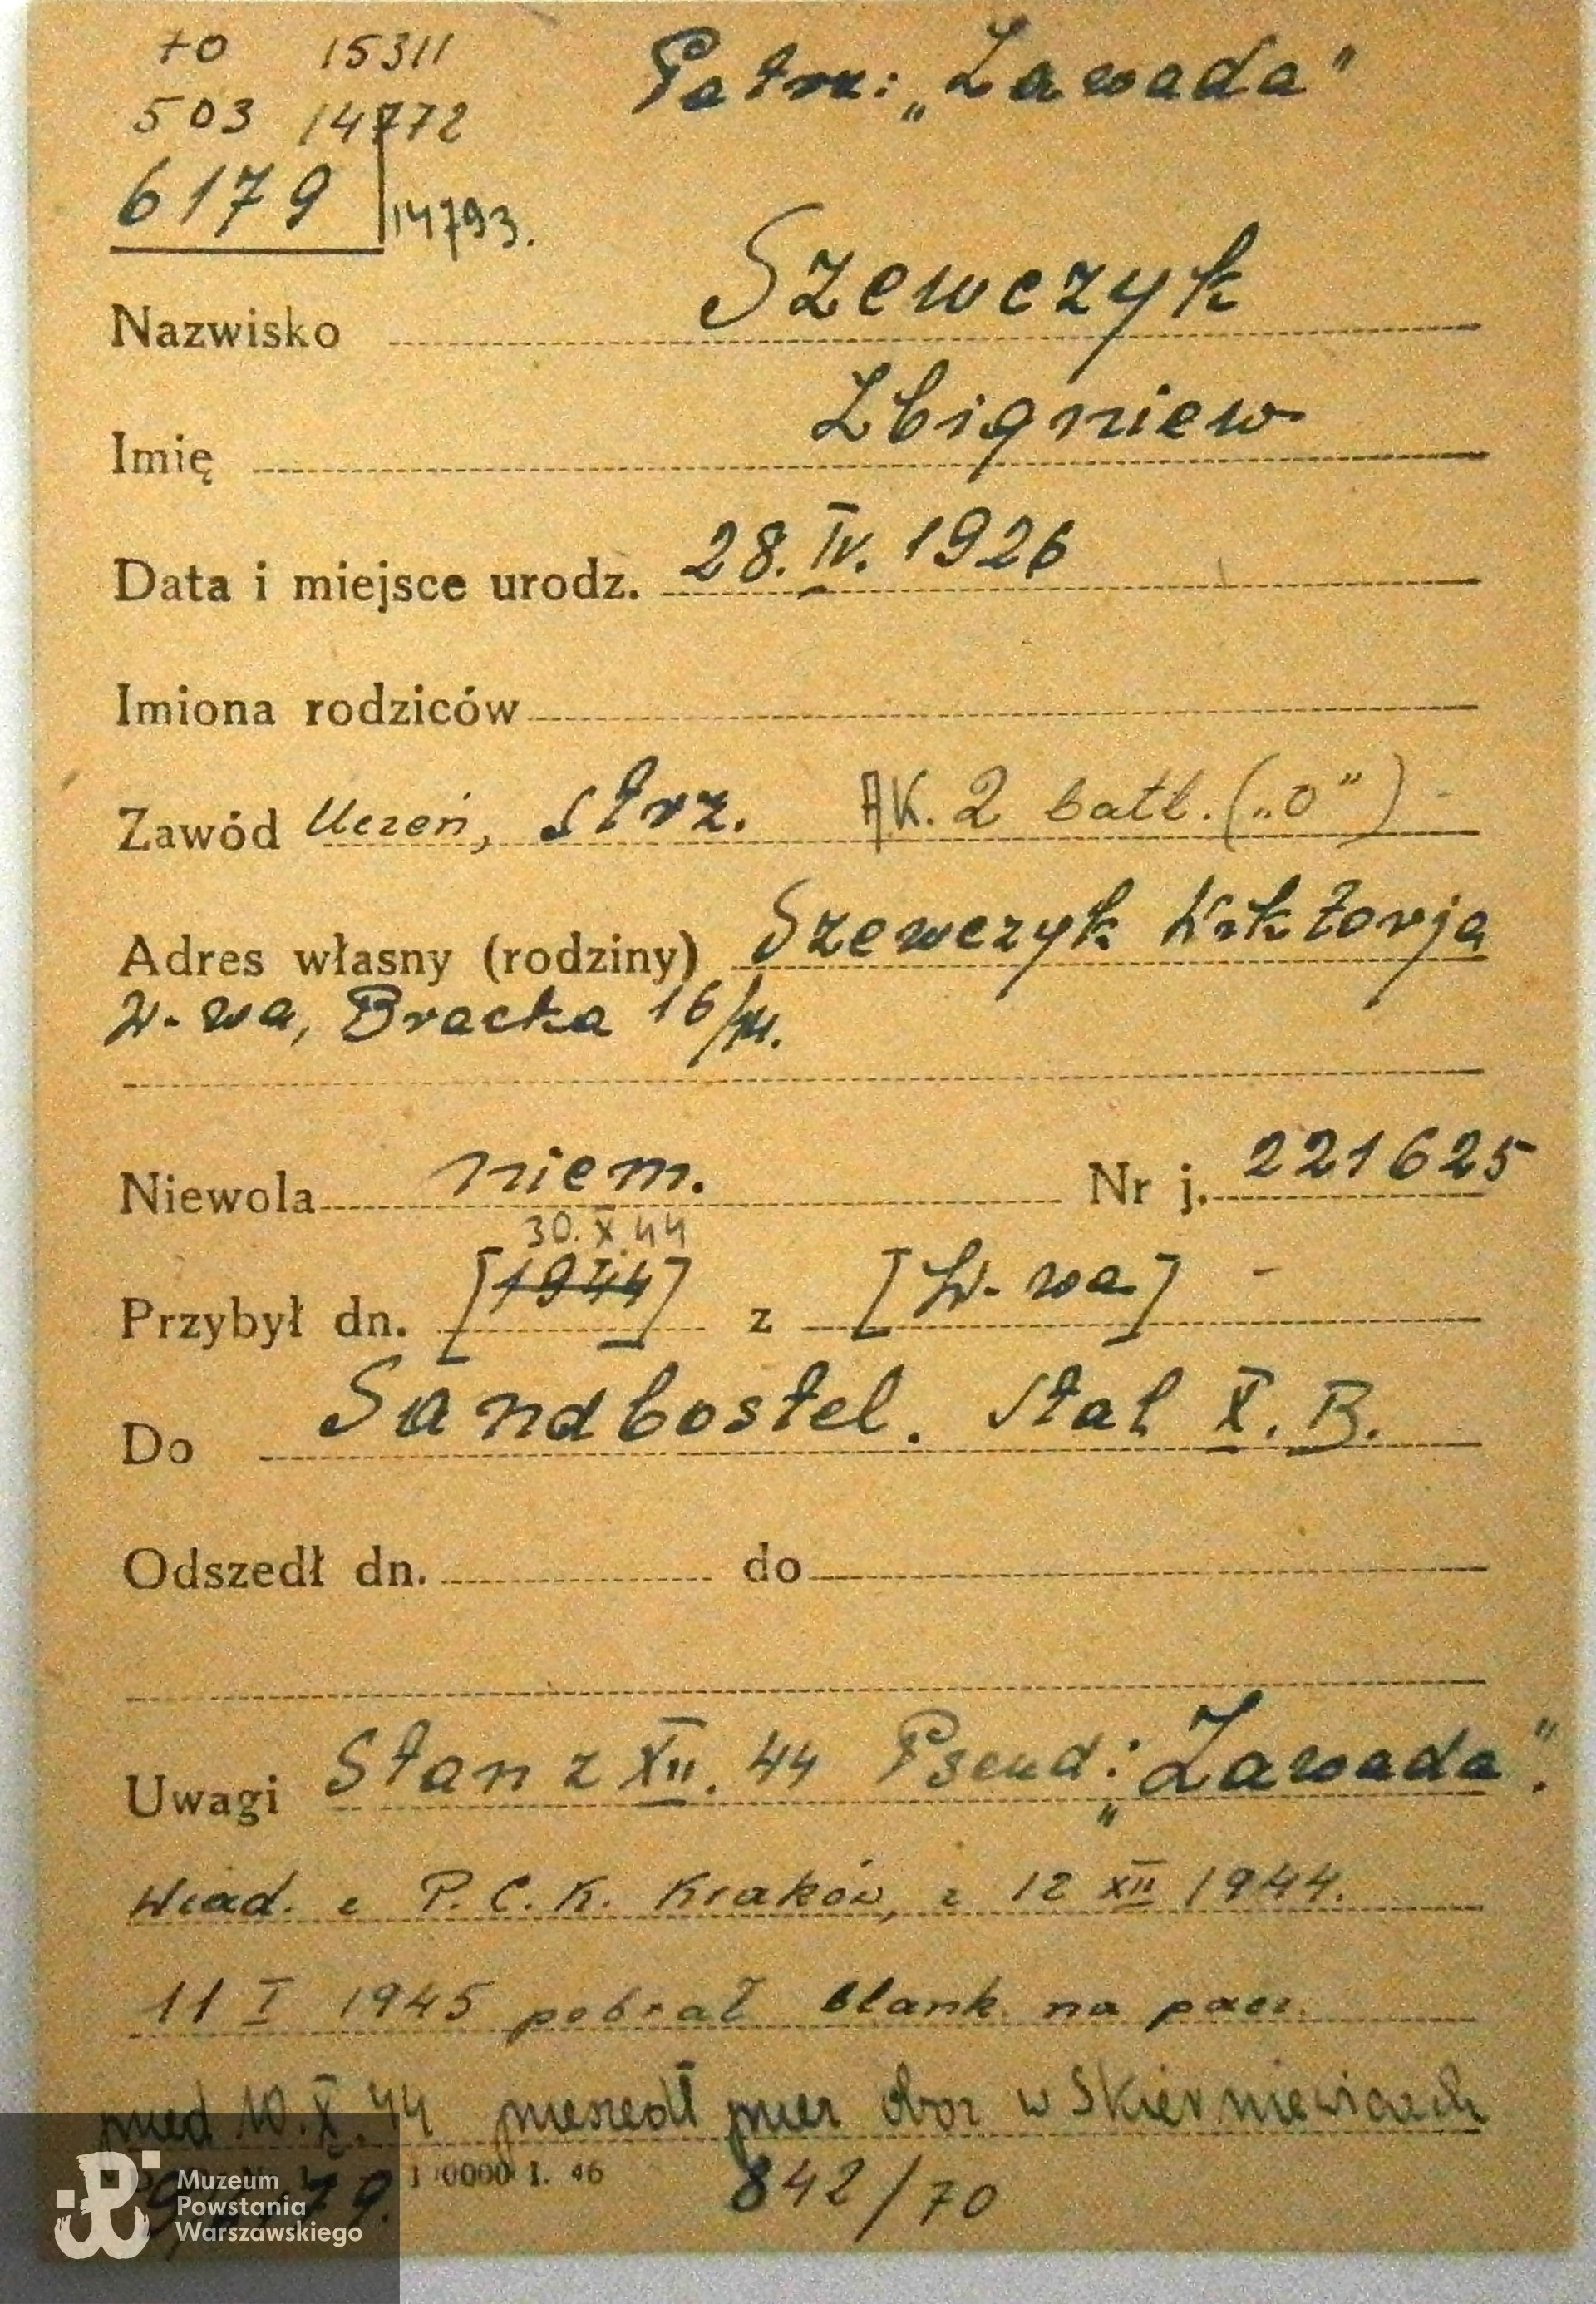 +0 15311 Patrz: „Zawada"
503 14772
6179 14793.
Nazwisko Szewczyk
Imię Zbigniew
Data i miejsce urodz. 28. IV. 1926
Imiona rodziców
Zawód Uczeń, strz. AK. 2 batl. („O")
Adres własny (rodziny) Szewczyk Wiktorja
W-wa, Bracka 16/
Niewola niem. Nr j. 221625
30.X.44
Przybył dn. [1944] z [W-wa] -
Do Sandbostel. Stal X. B.
Odszedł dn. do
Uwagi Stan z XII. 44 Pseud: „Zawada".
Wiad. z P.C.K. Kraków, z 12 XII 1944.
11 I 1945 pobrał blank. na pacz.
przed 10.X.44 przeszedł przez obóz w Skierniewicach
0000 I. 46 842/70
Muzeum
Powstania
Warszawskiego